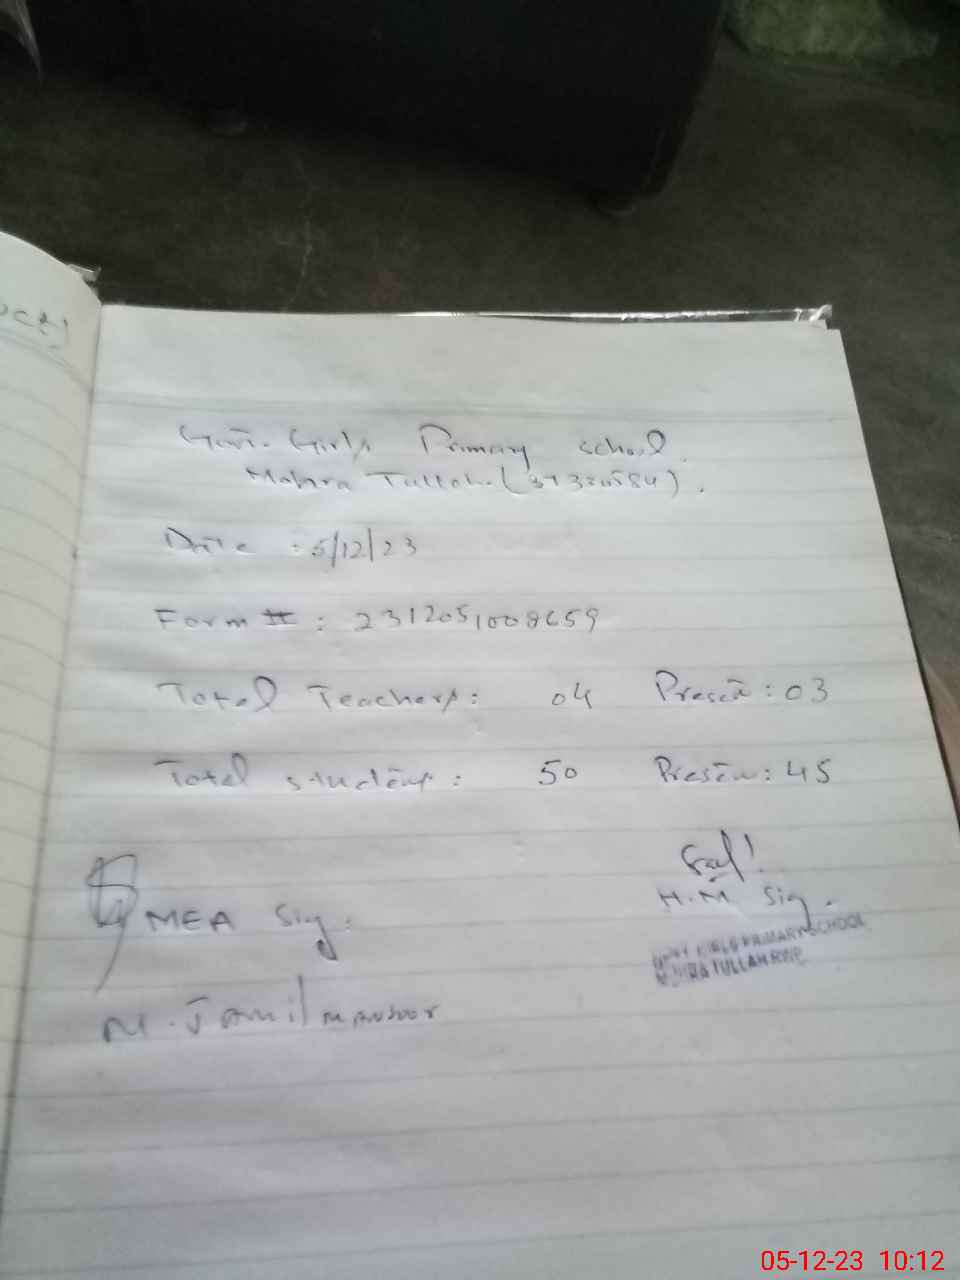 Govt. Girls Primary school.
Mohra Tullah (37330584).
Date : 5/12/23
Form # : 2312051008659
Total Teachers : 04 Present : 03
Total students : 50 Present : 45
MEA Sig :
H.M Sig.
GOVT GIRLS PRIMARY SCHOOL
MOHRA TULLAH RWP
M. Jamil Mansoor
05-12-23 10:12